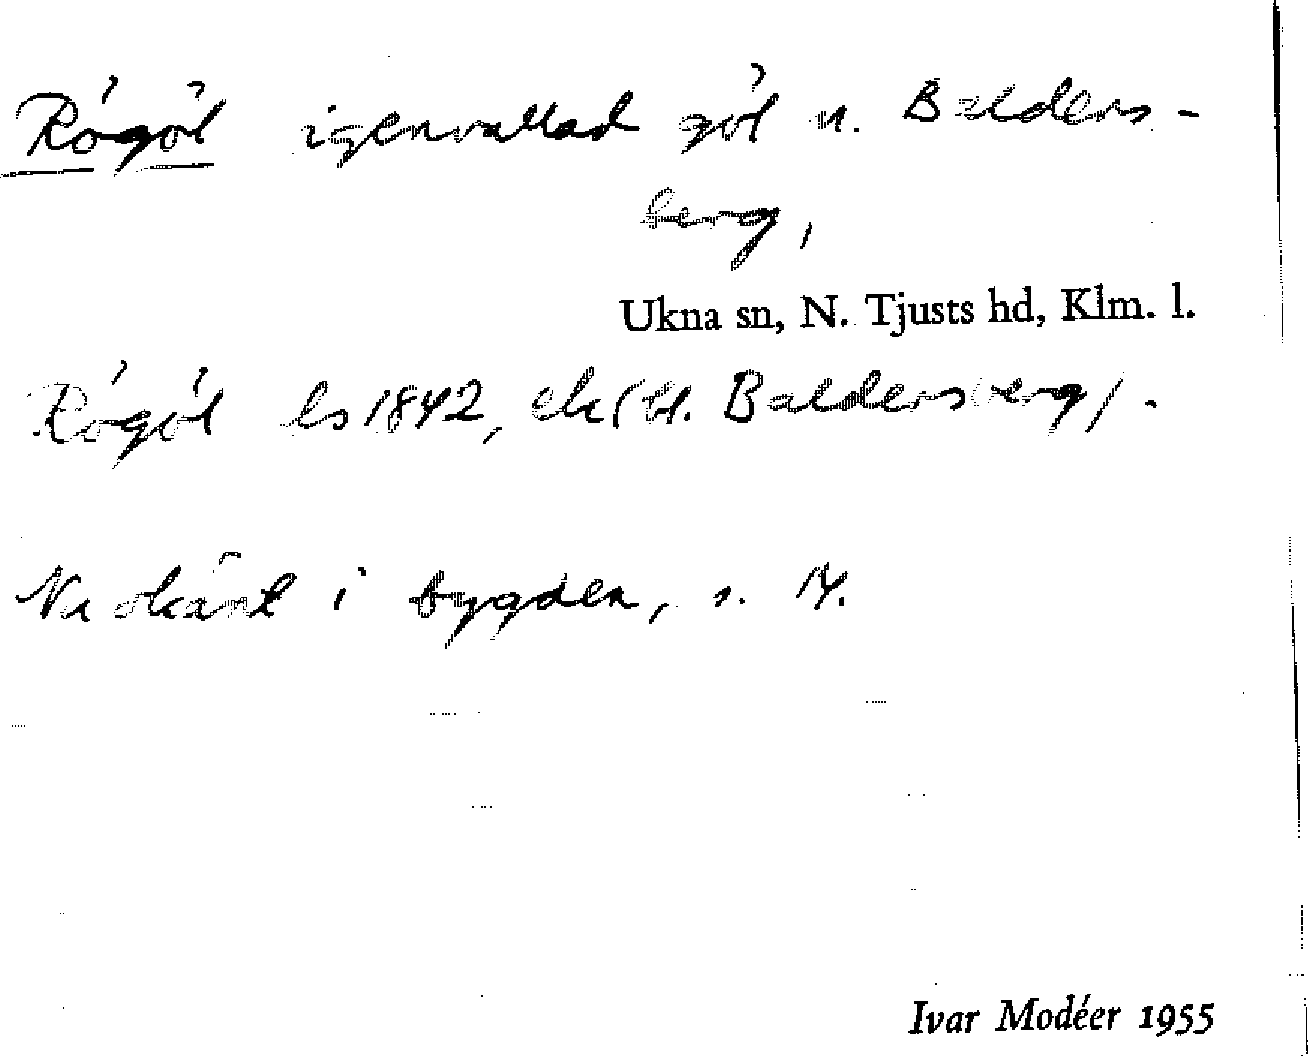 Rögöl igenvallad göl n. Balders-
berg,
Ukna sn, N. Tjusts hd, Klm. l.
Rögöl ls 1842, ek (tl. Baldersberg).
Nu okänt i bygden, s. 14.
Ivar Modéer 1955